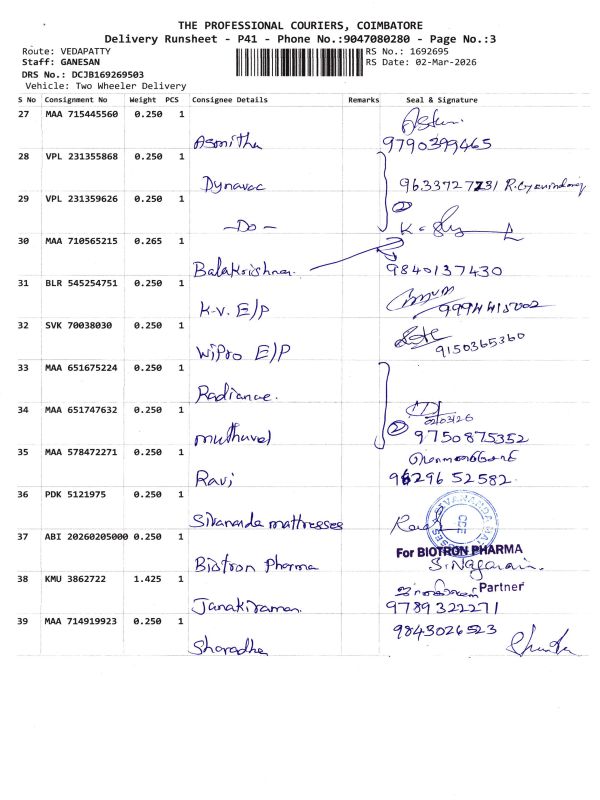 THE PROFESSIONAL COURIERS, COIMBATORE
Delivery Runsheet - P41 - Phone No.:9047080280 - Page No.:3
Route: VEDAPATTY
RS No.: 1692695
Staff: GANESAN
RS Date: 02-Mar-2026
DRS No.: DCJB169269503
Vehicle: Two Wheeler Delivery
S No Consignment No Weight PCS Consignee Details Remarks Seal & Signature
27 MAA 715445560 0.250 1
Asmitha 9790399465
28 VPL 231355868 0.250 1
Dynavac 9633727231
29 VPL 231359626 0.250 1 2
-Do-
30 MAA 710565215 0.265 1
Balakrishnan 9840137430
31 BLR 545254751 0.250 1
K.V. E/P 9994415002
32 SVK 70038030 0.250 1
Wipro E/P 9150365360
33 MAA 651675224 0.250 1
Radiance
34 MAA 651747632 0.250 1
02/03/26
muthuvel 2 9750875352
35 MAA 578472271 0.250 1
Ravi 9629652582
36 PDK 5121975 0.250 1
Sivananda mattresses
37 ABI 20260205000 0.250 1
For BIOTRON PHARMA
Biotron Pharma S. Nagarajan
38 KMU 3862722 1.425 1
Partner
Janakiraman 9789322271
39 MAA 714919923 0.250 1
9843026523
Sharadha